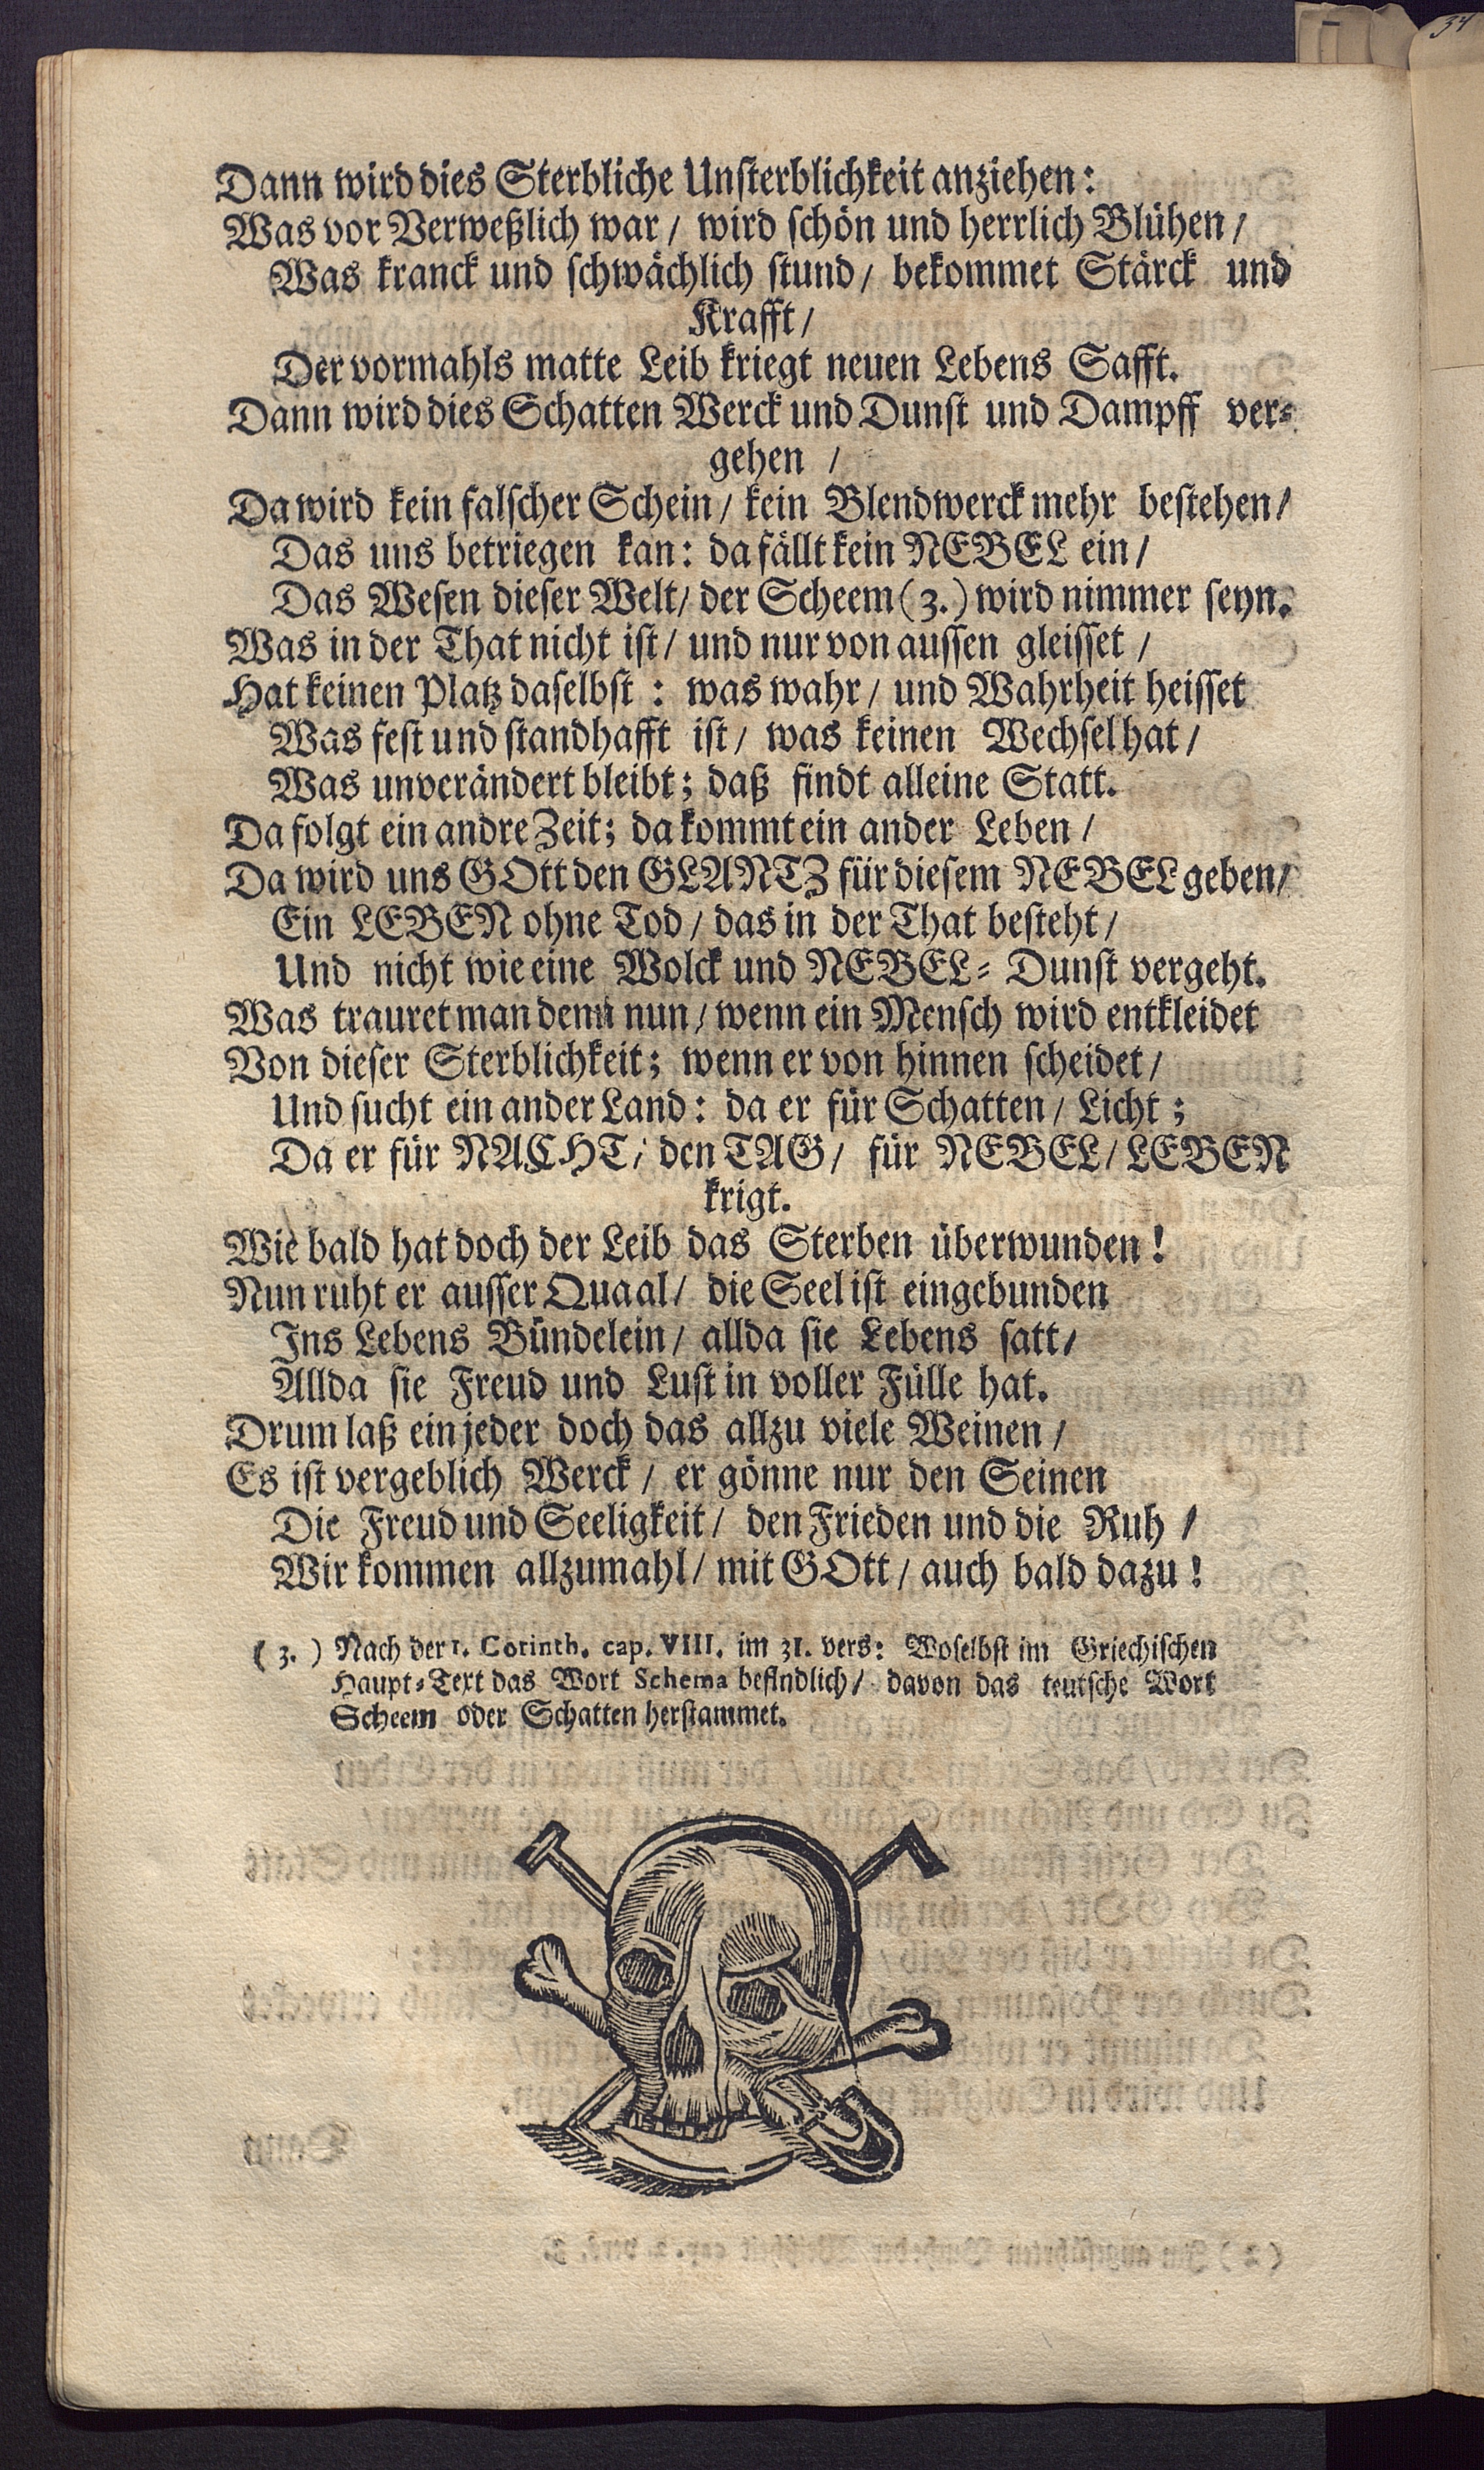 34
Dann wird dies Sterbliche Unsterblichkeit anziehen:
Was vor Verweßlich war / wird schön und herrlich Blühen /
Was kranck und schwächlich stund / bekommet Stärck und
Krafft /
Der vormahls matte Leib kriegt neuen Lebens Safft.
Dann wird dies Schatten Werck und Dunst und Dampff ver-
gehen /
Da wird kein falscher Schein / kein Blendwerck mehr bestehen /
Das uns betriegen kan: da fällt kein NEBEL ein /
Das Wesen dieser Welt / der Scheem (3.) wird nimmer seyn.
Was in der That nicht ist / und nur von aussen gleisset /
Hat keinen Platz daselbst: was wahr / und Wahrheit heisset
Was fest und standhafft ist / was keinen Wechsel hat /
Was unverändert bleibt; daß findt alleine Statt.
Da folgt ein andre Zeit; da kommt ein ander Leben /
Da wird uns GOtt den GLANTZ für diesem NEBEL geben /
Ein LEBEN ohne Tod / das in der That besteht /
Und nicht wie eine Wolck und NEBEL-Dunst vergeht.
Was trauret man denn nun / wenn ein Mensch wird entkleidet
Von dieser Sterblichkeit; wenn er von hinnen scheidet /
Und sucht ein ander Land: da er für Schatten / Licht;
Da er für NACHT / den TAG / für NEBEL / LEBEN
krigt.
Wie bald hat doch der Leib das Sterben überwunden!
Nun ruht er ausser Quaal / die Seel ist eingebunden
Ins Lebens Bündelein / allda sie Lebens satt /
Allda sie Freud und Lust in voller Fülle hat.
Drum laß ein jeder doch das allzu viele Weinen /
Es ist vergeblich Werck / er gönne nur den Seinen
Die Freud und Seeligkeit / den Frieden und die Ruh /
Wir kommen allzumahl / mit GOtt / auch bald dazu!
(3.) Nach der 1. Corinth. cap. VIII. im 31. vers: Woselbst im Griechischen
Haupt-Text das Wort Schema befindlich / davon das teutsche Wort
Scheem oder Schatten herstammet.